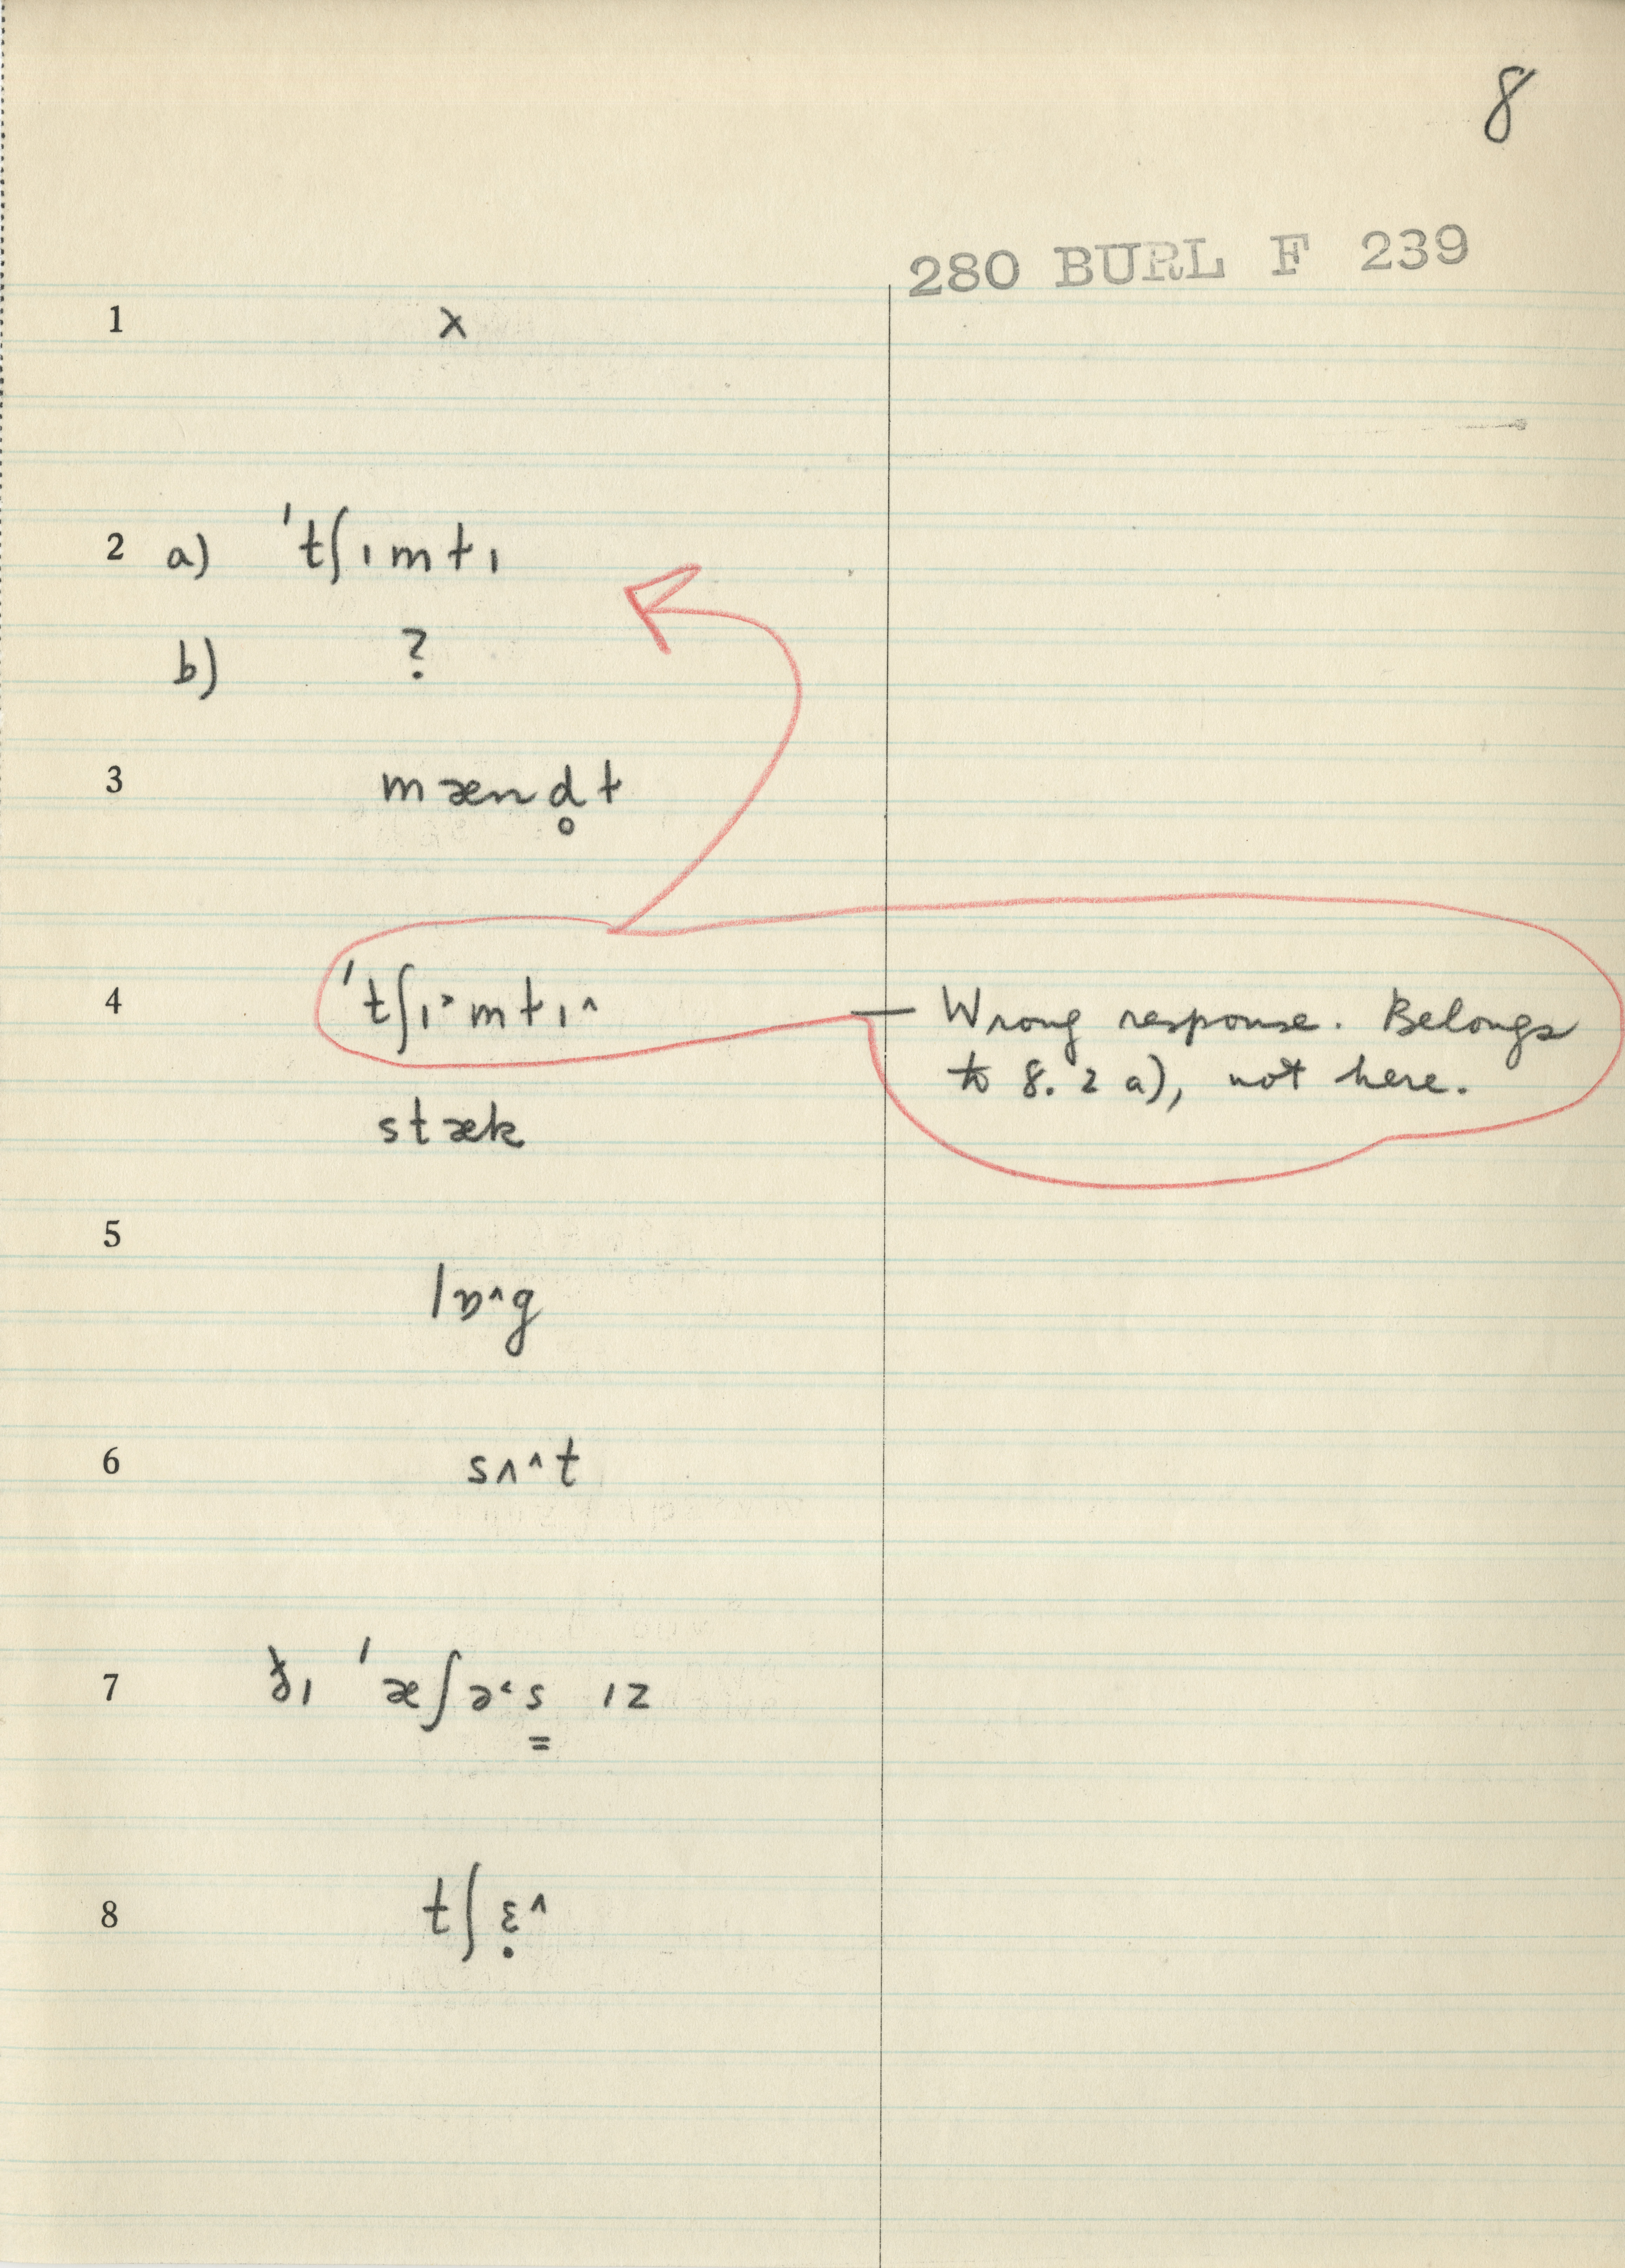 8
280 BURL F 239
1 x
2 a) ˈtʃɪmtɪ
b) ?
3 mænd̥t
4 ˈtʃɪ˃mtɪ˄ — Wrong response. Belongs
to 8. 2 a), not here.
stæk
5
lɒ˄g
6 sʌ˄t
7 ðɪ ˈæʃə˂s̳ ɪz
8 tʃɛ̣˄